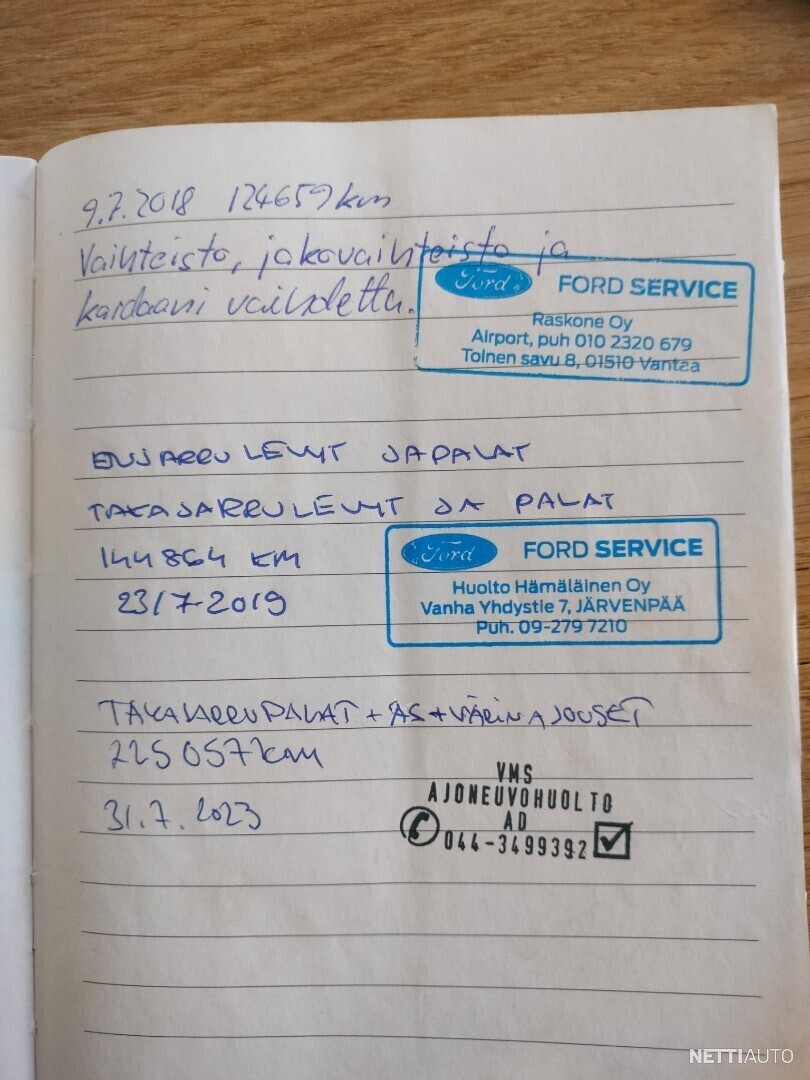 9.7.2018 124659 km
Vaihteisto, jakovaihteisto ja
kardaani vaihdettu.
Ford FORD SERVICE
Raskone Oy
Airport, puh 010 2320 679
Toinen savu 8, 01510 Vantaa
ETUJARRULEVYT JA PALAT
TAKAJARRULEVYT JA PALAT
144864 KM
23/7-2019
Ford FORD SERVICE
Huolto Hämäläinen Oy
Vanha Yhdystie 7, JÄRVENPÄÄ
Puh. 09-279 7210
TAKAJARRUPALAT + AS + VÄRINÄJOUSET
225 057 km
31.7.2023
VMS
AJONEUVOHUOLTO
AD
044-3499392
NETTIAUTO